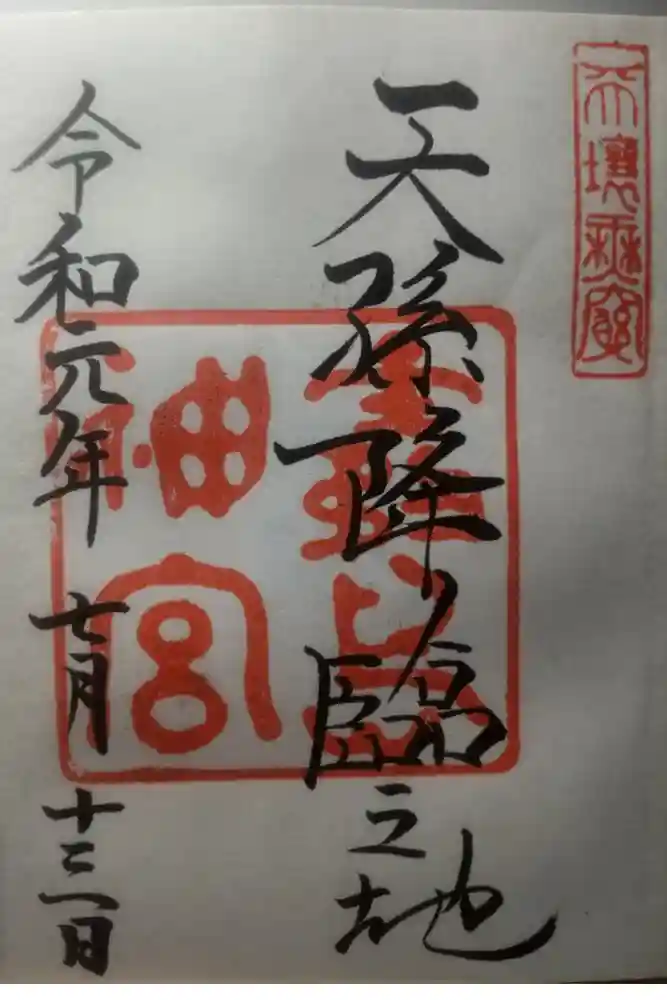 天壤無窮
天孫降臨之地
霧島神宮
令和元年七月十三日